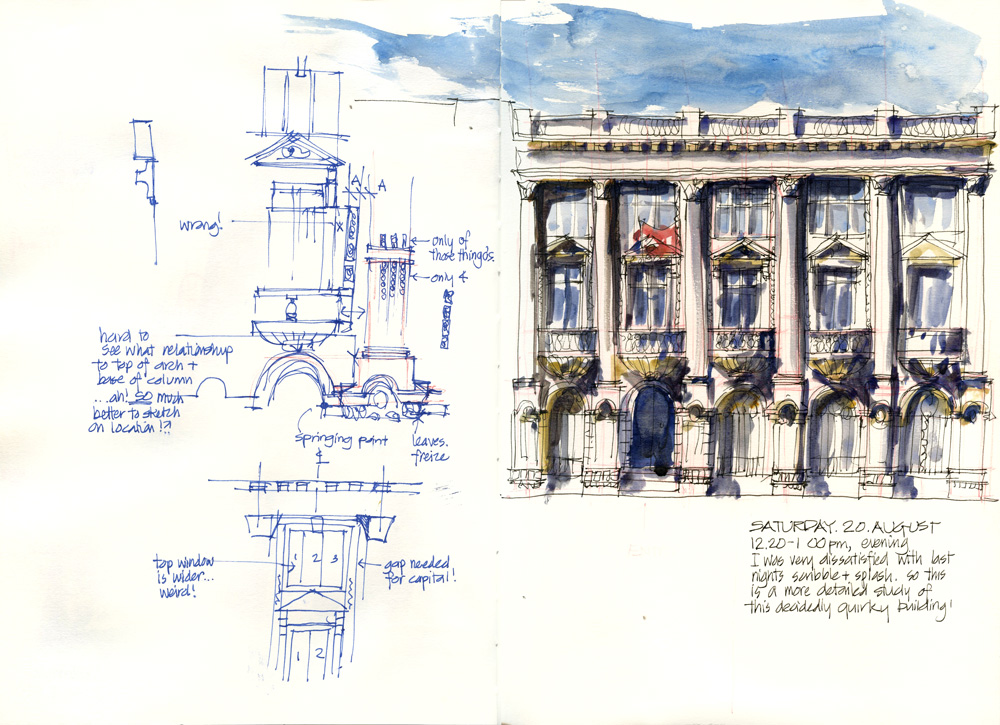 A
A
wrong!
only of
those thingo's.
only 4
X
hard to
see what relationship
to top of arch +
base of column
...ah! SO much
better to sketch
on location!?!
springing point
leaves.
freize
top window
is wider...
weird!
1 2 3
gap needed
for capital!
1 2
SATURDAY. 20. AUGUST
12.20-1 00pm, evening
I was very dissatisfied with last
nights scribble + splash. so this
is a more detailed study of
this decidedly quirky building!